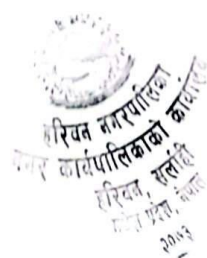 हरिवन नगरपालिका
नगर कार्यपालिकाको कार्यालय
हरिवन, सर्लाही
प्रदेश, नेपाल
२०७३